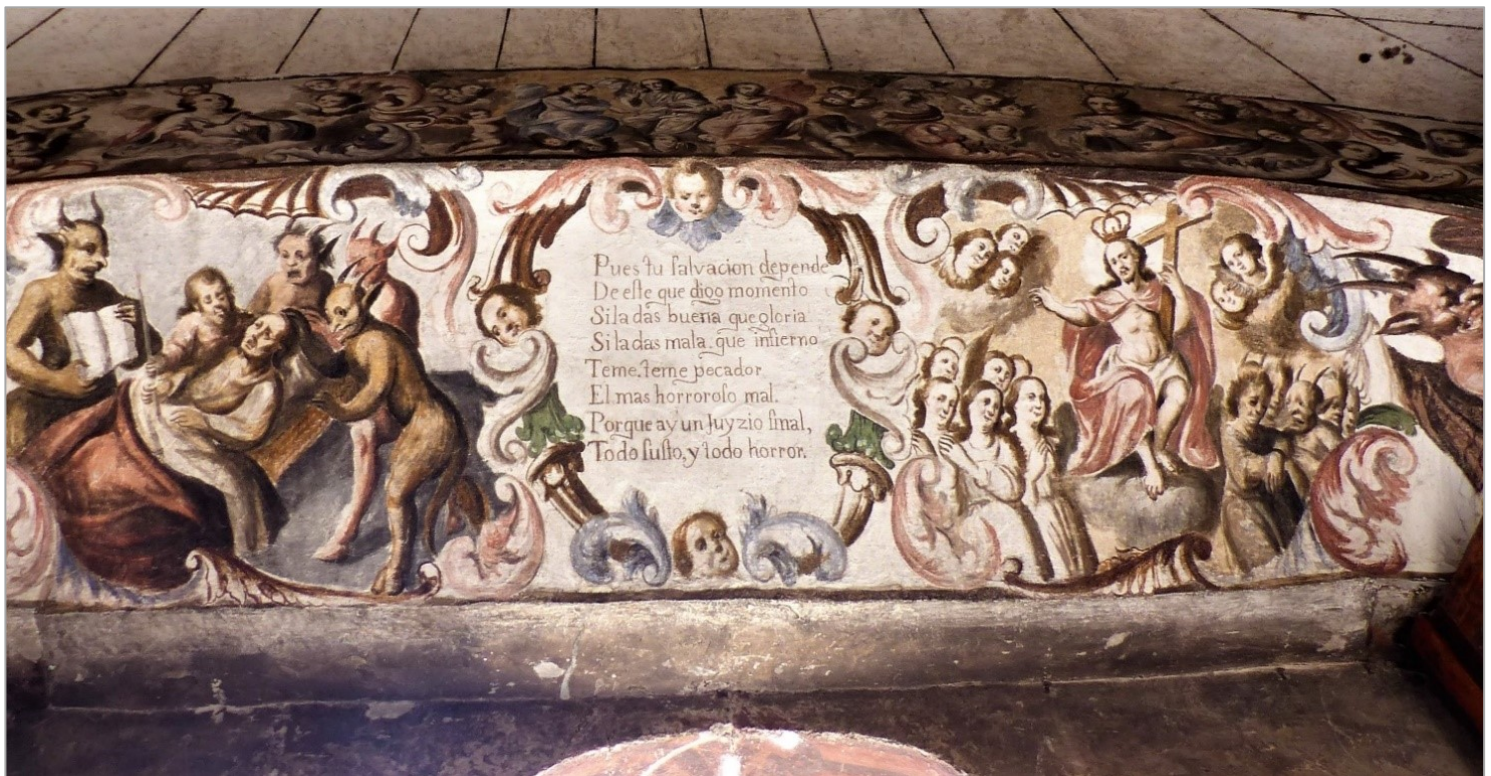 Pues tu ſalvacion depende
De eſte que digo momento
Si la das buena que gloria
Si la das mala. que infierno
Teme. teme pecador
El mas horroroſo mal.
Porque ay un Juyzio final,
Todo ſuſto, y todo horror.